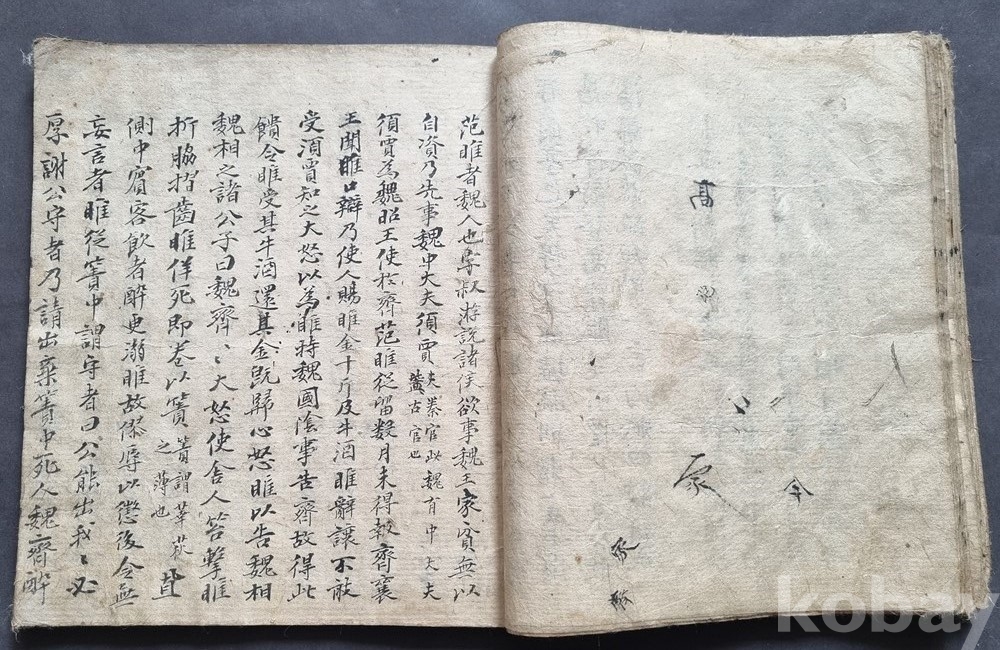 高
家
今
范睢者魏人也字叔游說諸侯欲事魏王家貧無以
自資乃先事魏中大夫須賈
秦官此魏有中大夫
古官也
須賈為魏昭王使於齊范睢從留數月未得報齊襄
王聞睢口辯乃使人賜睢金十斤及牛酒睢辭讓不敢
受須賈知之大怒以為睢持魏國陰事告齊故得此
饋令睢受其牛酒還其金既歸心怒睢以告魏相
魏相之諸公子曰魏齊〻大怒使舍人笞擊睢
折脇摺齒睢佯死即卷以簀
簀謂葦荻
之薄也
置
側中賓客飲者醉更溺睢故僇辱以懲後令無
妄言者睢從簀中謂守者曰公能出我〻必
厚謝公守者乃請出棄簀中死人魏齊醉
kobay